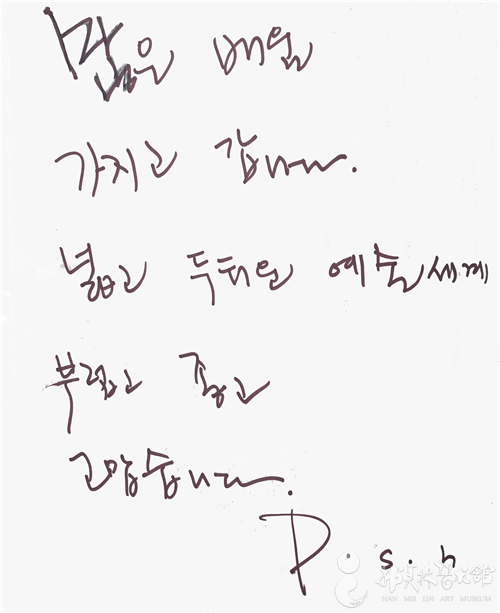 많은 배움
가지고 갑니다.
넓고 두터운 예술세계
부럽고 좋고
고맙습니다.
P. s. h
韩美林艺术馆
HAN MEI LIN ART MUSEUM